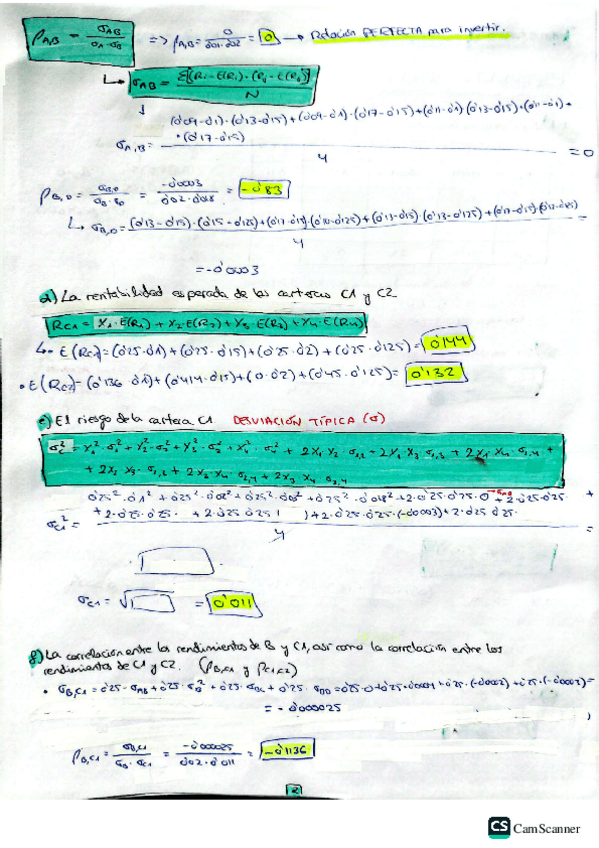 ρA,B = σAB / σA·σB => ρA,B = 0 / 0'01·0'02 = 0 → Relación PERFECTA para invertir.
↳ σAB = Σ[(Ri - E(Ri))·(Rj - E(Rj))] / N
↓
(0'09-0'1)·(0'13-0'15)+(0'09-0'1)·(0'17-0'15)+(0'11-0'1)(0'13-0'15)+(0'11-0'1)+
·(0'17-0'15)
σA,B = / 4 = 0
ρB,D = σB,D / σB·σD = -0'0003 / 0'02·0'018 = -0'83
↳ σB,D = (0'13-0'15)·(0'15-0'125)+(0'17-0'15)·(0'10-0'125)+(0'13-0'15)·(0'13-0'125)+(0'17-0'15)·(0'12-0'125)
4
= -0'0003
d) La rentabilidad esperada de las carteras C1 y C2
RC1 = X1·E(R1) + X2·E(R2) + X3·E(R3) + X4·E(R4)
↳ E(RC1) = (0'25·0'1)+(0'25·0'15)+(0'25·0'2)+(0'25·0'125) = 0'144
• E(RC2) = (0'136·0'1)+(0'414·0'15)+(0·0'2)+(0'45·0'125) = 0'132
e) El riesgo de la cartera C1 DESVIACIÓN TÍPICA (σ)
σ²c = X1²·σ1² + X2²·σ2² + X3²·σ3² + X4²·σ4² + 2X1X2·σ1,2 + 2X1X3σ1,3 + 2X1X4·σ1,4 +
+ 2X2X3·σ2,3 + 2X2X4·σ2,4 + 2X3X4σ3,4
+2·0'25·0'25· +2·0'25·0'25( )+2·0'25·0'25·(-0'0003)+2·0'25·0'25·
σ²C1 = / 4 =
σC1 = √ = 0'011
f) La correlación entre los rendimientos de B y C1, así como la correlación entre los
rendimientos de C1 y C2. (ρB,C1 y ρC1,C2)
• σB,C1 = 0'25·σAB + 0'25·σB² + 0'25·σBC + 0'25·σBD = 0'25·0+0'25·0'0004+0'25·(-0'0002)+0'25·(-0'0003) =
= -0'000025
ρB,C1 = σB,C1 / σB·σC1 = -0'000025 / 0'02·0'011 = -0'1136
2
CS CamScanner